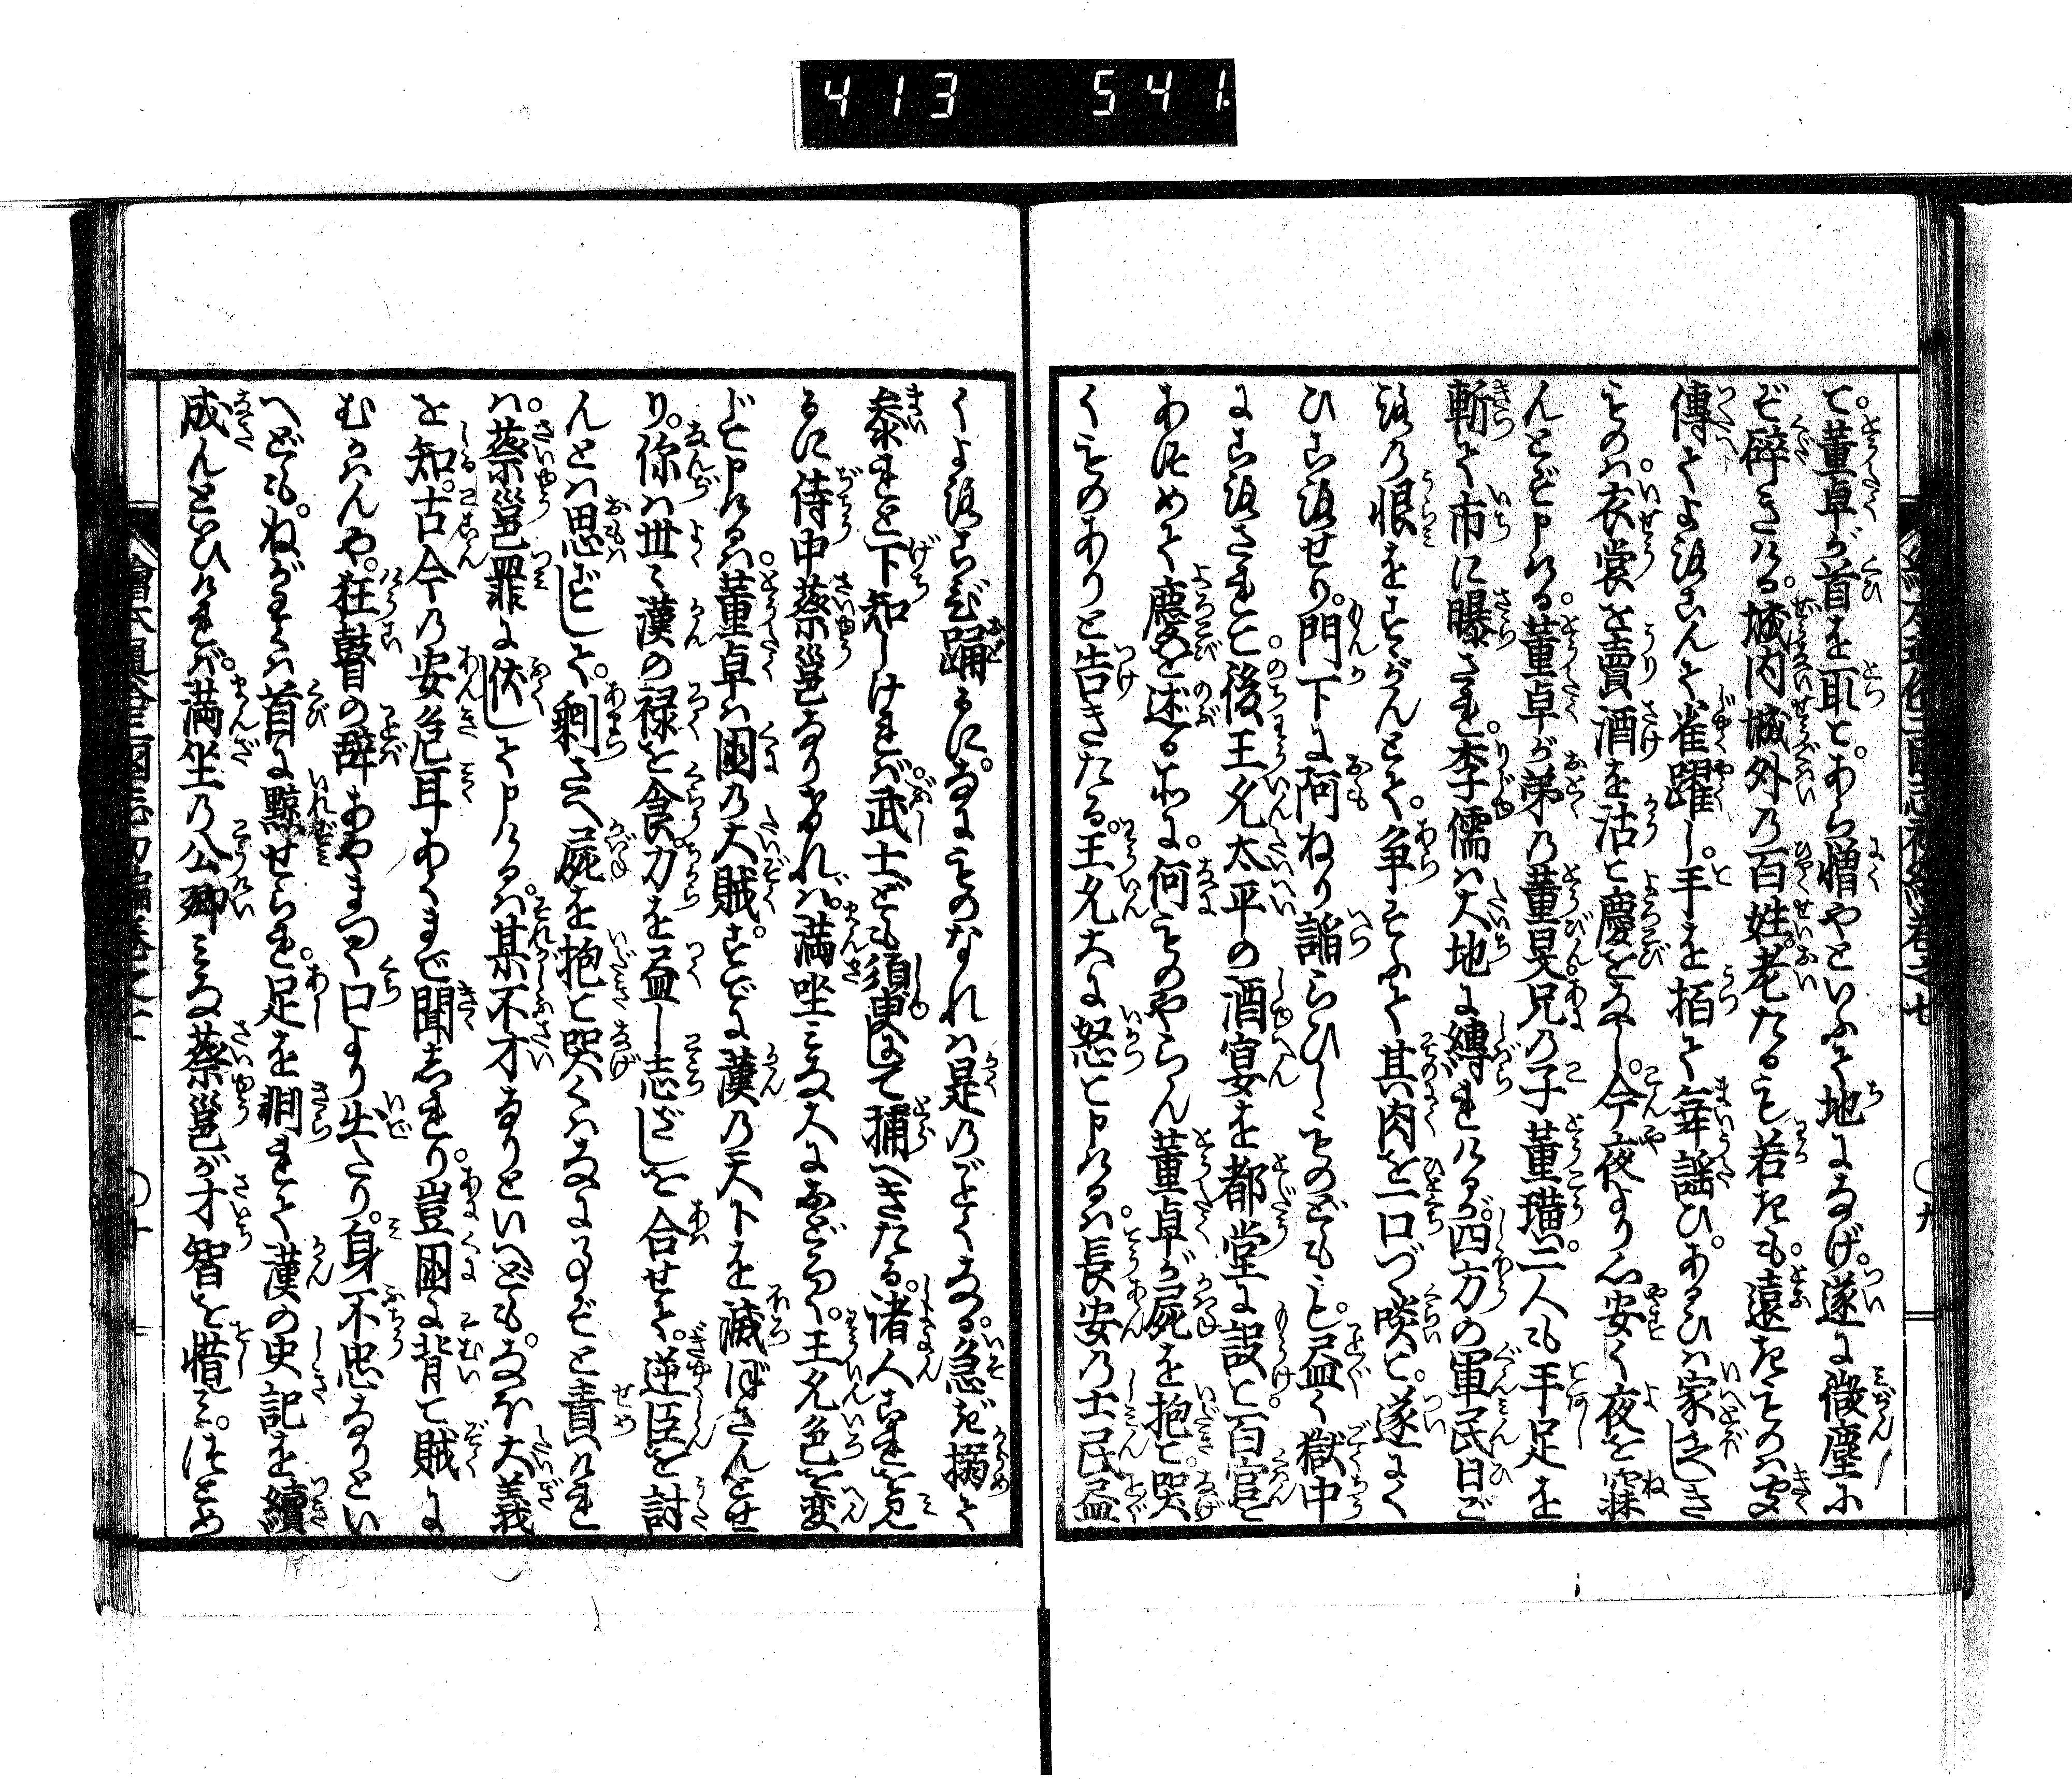 413 541
て。董卓が首を取て。あら憎やといふて地になげ。遂に微塵に
ぞ碎きける。城内城外の百姓。老たるも若きも。遠きものは聞
傳てよろこんで雀躍し。手を拍て舞謡ひ。あるひは家貧き
ものは。衣裳を賣酒を沽て慶をなし。今夜より心安く夜を寐
んとぞ申ける。董卓が弟の董旻。兄の子董璜。二人も手足を
斬て市に曝され。李儒は大地に縛られけるが。四方の軍民日ご
ろの恨をすゝがんとて。爭そふて其肉を一口づゝ啖て。遂によく
ひころせり。門下に阿ねり諂らひしものどもも。盡く獄中
にころされて後。王允太平の酒宴を都堂に設て。百官を
あつめて慶を述る所に。何ものやらん董卓が屍を抱て哭
くものありと告きたる。王允大に怒て申けるは。長安の士民盡
くよろこび踊るに。なにものなれは是のごとくなる。急ぎ搦て
參れと下知しければ。武士ども須臾にして捕へきたる。諸人これを見
るに侍中蔡邕なりければ。滿坐みな大におどろく。王允色を変
じて申けるは。董卓は國の大賊。すでに漢の天下を滅ぼさんとせ
り。你は世々漢の禄を食。力を盡し志ざしを合せて。逆臣を討
んとは思ずして。剰さへ屍を抱て哭くはなに事ぞと責ければ
は。蔡邕罪に伏して申けるは。某不才なりといへども。なほ大義
を知。古今の安危耳あくまで聞しれり。豈國に背て賊に
むかはんや。狂瞽の辞あやまつて口より出たり。身不忠なりとい
へども。ねがはくは首に黥せられ。足を刖られて漢の史記を續
成んといひければ。滿坐の公卿みな蔡邕が才智を惜み。つとめ